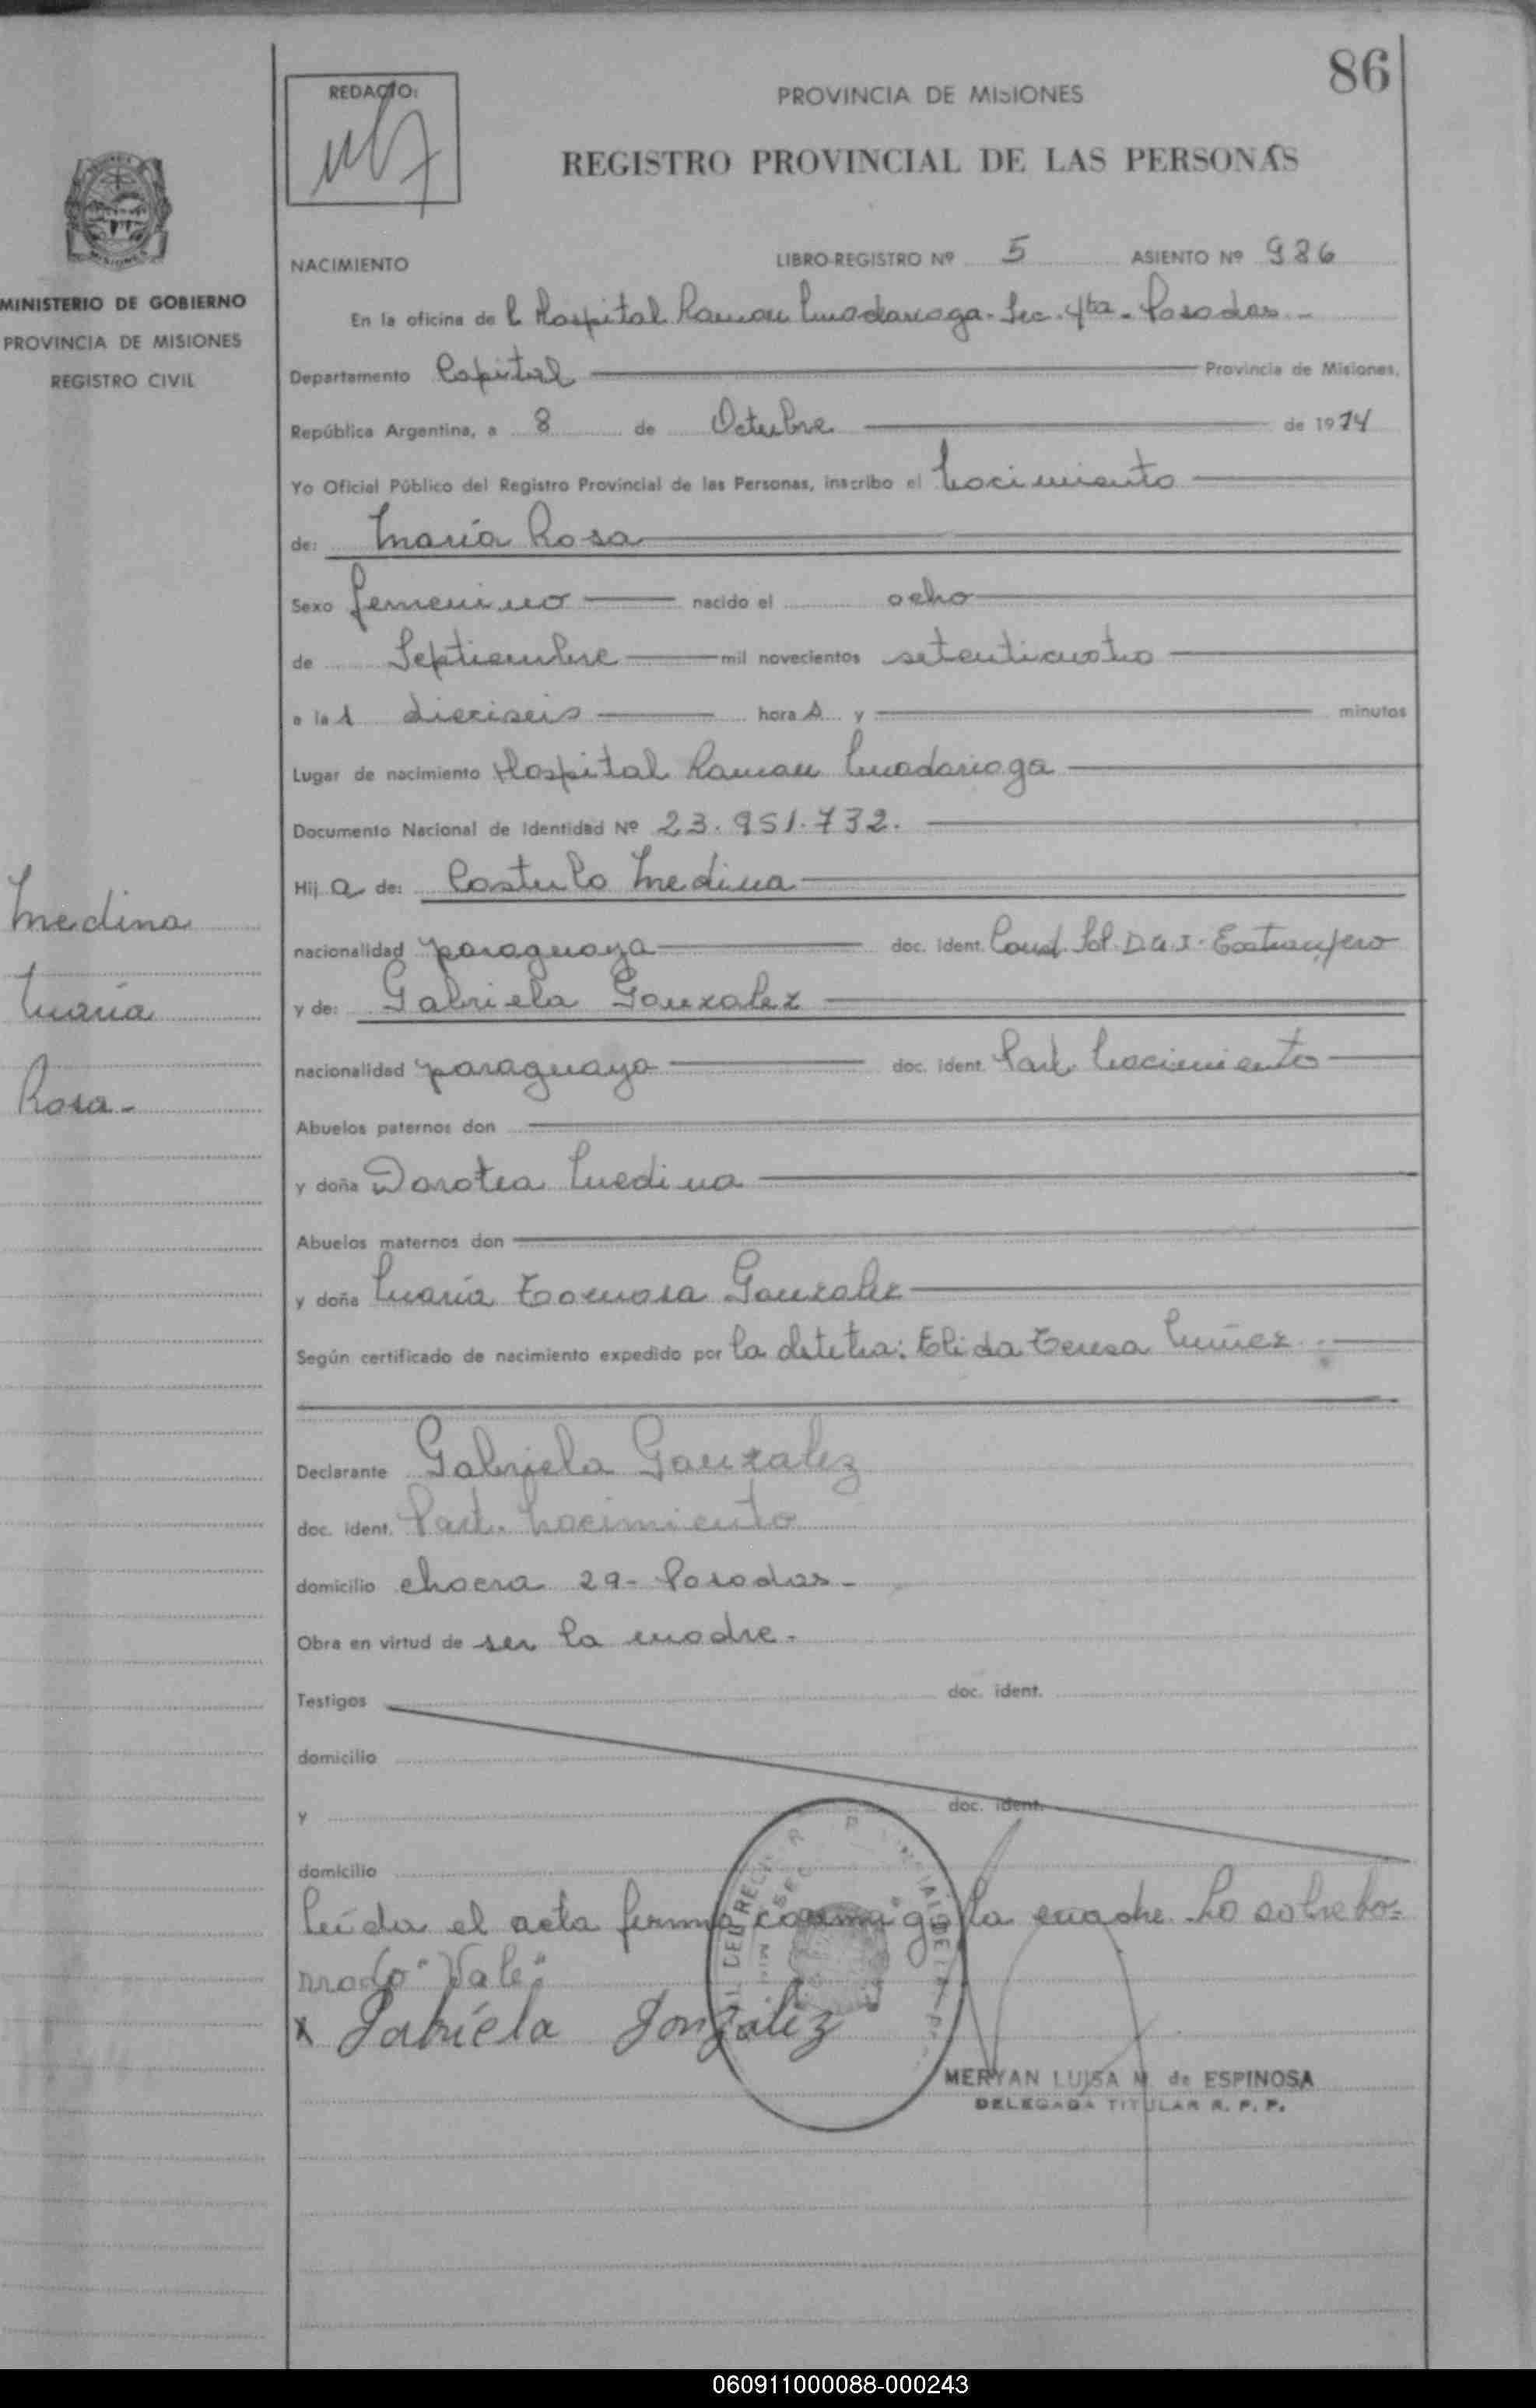 86
REDACTO:
PROVINCIA DE MISIONES
REGISTRO PROVINCIAL DE LAS PERSONAS
MINISTERIO DE GOBIERNO
PROVINCIA DE MISIONES
REGISTRO CIVIL
NACIMIENTO LIBRO-REGISTRO Nº 5 ASIENTO Nº 986
En la oficina de l Hospital Ramon Madariaga - Sec. 4ta - Posadas -
Departamento Capital Provincia de Misiones,
República Argentina, a 8 de Octubre de 1974
Yo Oficial Público del Registro Provincial de las Personas, inscribo el Nacimiento
de: María Rosa
Sexo femenino nacido el ocho
de Septiembre mil novecientos setenticuatro
a las dieciseis horas y minutos
Lugar de nacimiento Hospital Ramon Madariaga
Documento Nacional de Identidad Nº 23.951.732.
Hija de: Castulo Medina
nacionalidad paraguaya doc. ident. Cond. Sol. D.U.I. Extranjero
y de: Gabriela Gonzalez
nacionalidad paraguaya doc. ident. Part. Nacimiento
Abuelos paternos don
y doña Dorotea Medina
Abuelos maternos don
y doña María Tomasa Gonzalez
Según certificado de nacimiento expedido por la obstetra: Elida Teresa Nuñez
Declarante Gabriela Gonzalez
doc. ident. Part. Nacimiento
domicilio chacra 29 - Posadas -
Obra en virtud de ser la madre -
Testigos doc. ident.
domicilio
y doc. ident.
domicilio
Leída el acta firma conmigo la madre. Lo sobrebo=
rrado "Vale"
x Gabriela Gonzalez
MERYAN LUISA M. de ESPINOSA
DELEGADA TITULAR R. P. P.
Medina
María
Rosa -
060911000088-000243